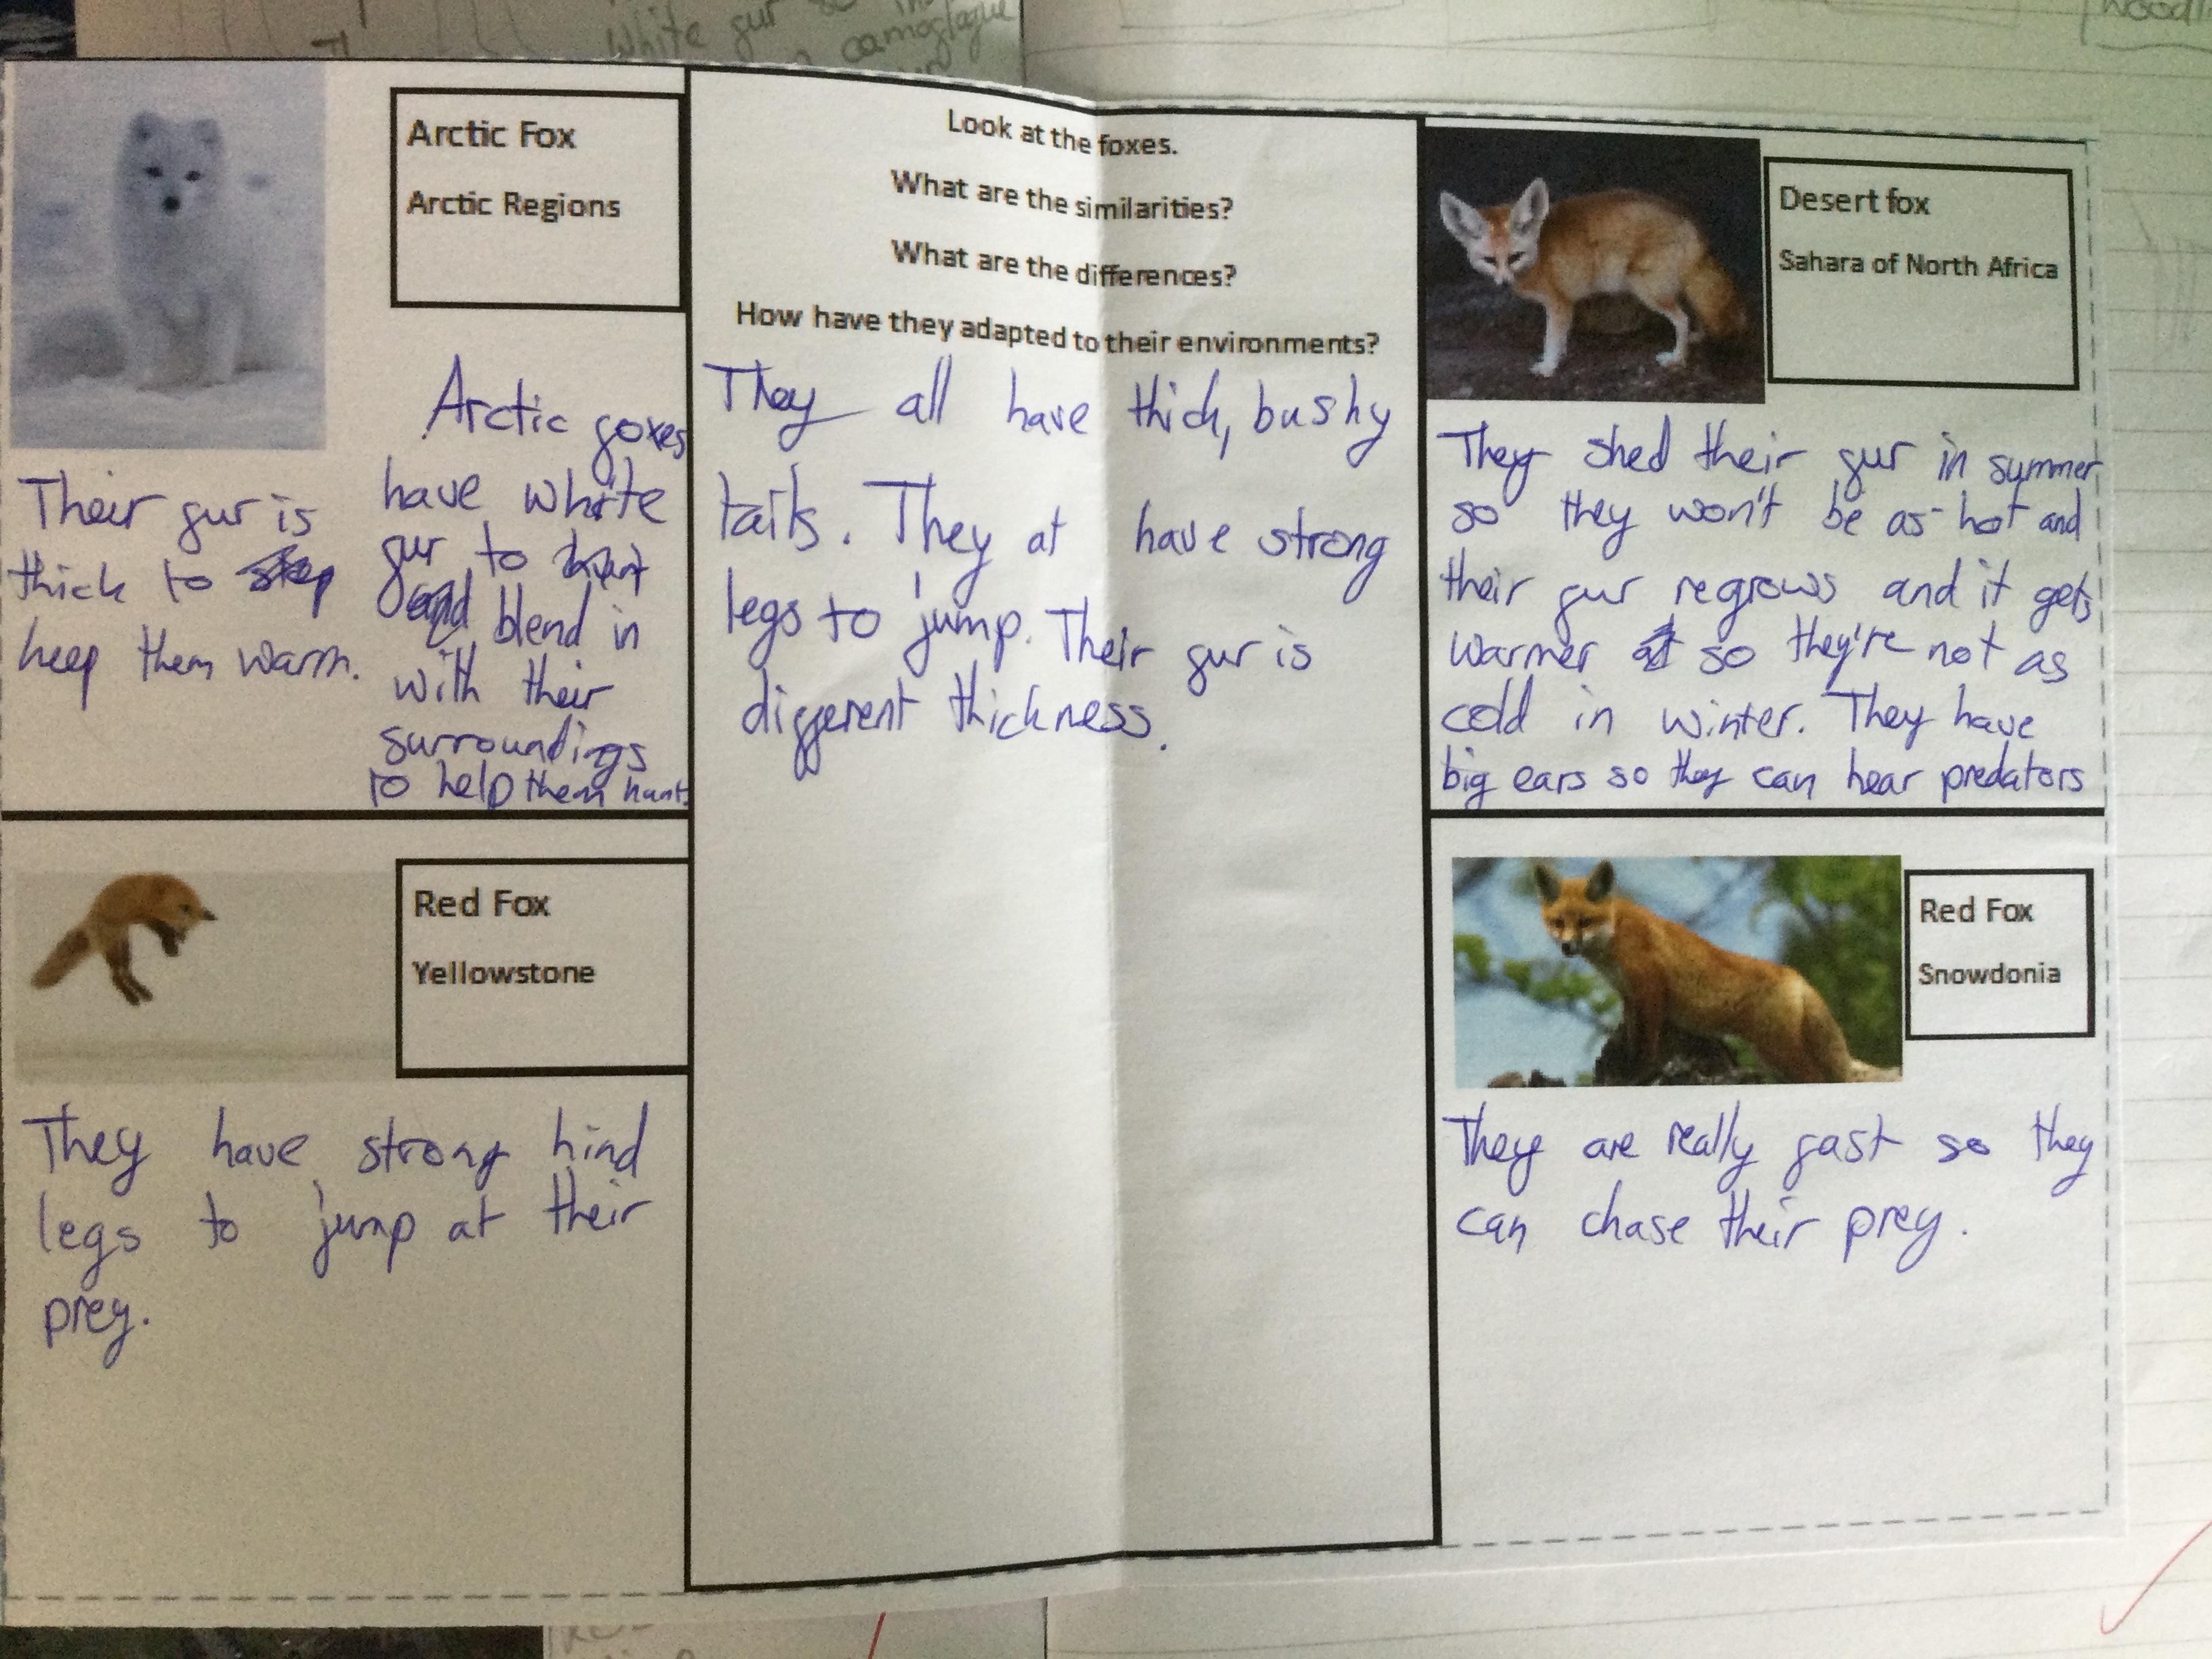 White gur
camoglague
Arctic Fox
Arctic Regions
Arctic goxes
have white
gur to hunt
and blend in
with their
surroundings
to help them hunt.
Their gur is
thick to stop
keep them warm.
Look at the foxes.
What are the similarities?
What are the differences?
How have they adapted to their environments?
They all have thick, bushy
tails. They at have strong
legs to jump. Their gur is
diggerent thickness.
Desert fox
Sahara of North Africa
They shed their gur in summer
so they won't be as hot and
their gur regrows and it gets
warmer at so they're not as
cold in winter. They have
big ears so they can hear predators
Red Fox
Yellowstone
They have strong hind
legs to jump at their
prey.
Red Fox
Snowdonia
They are really gast so they
can chase their prey.